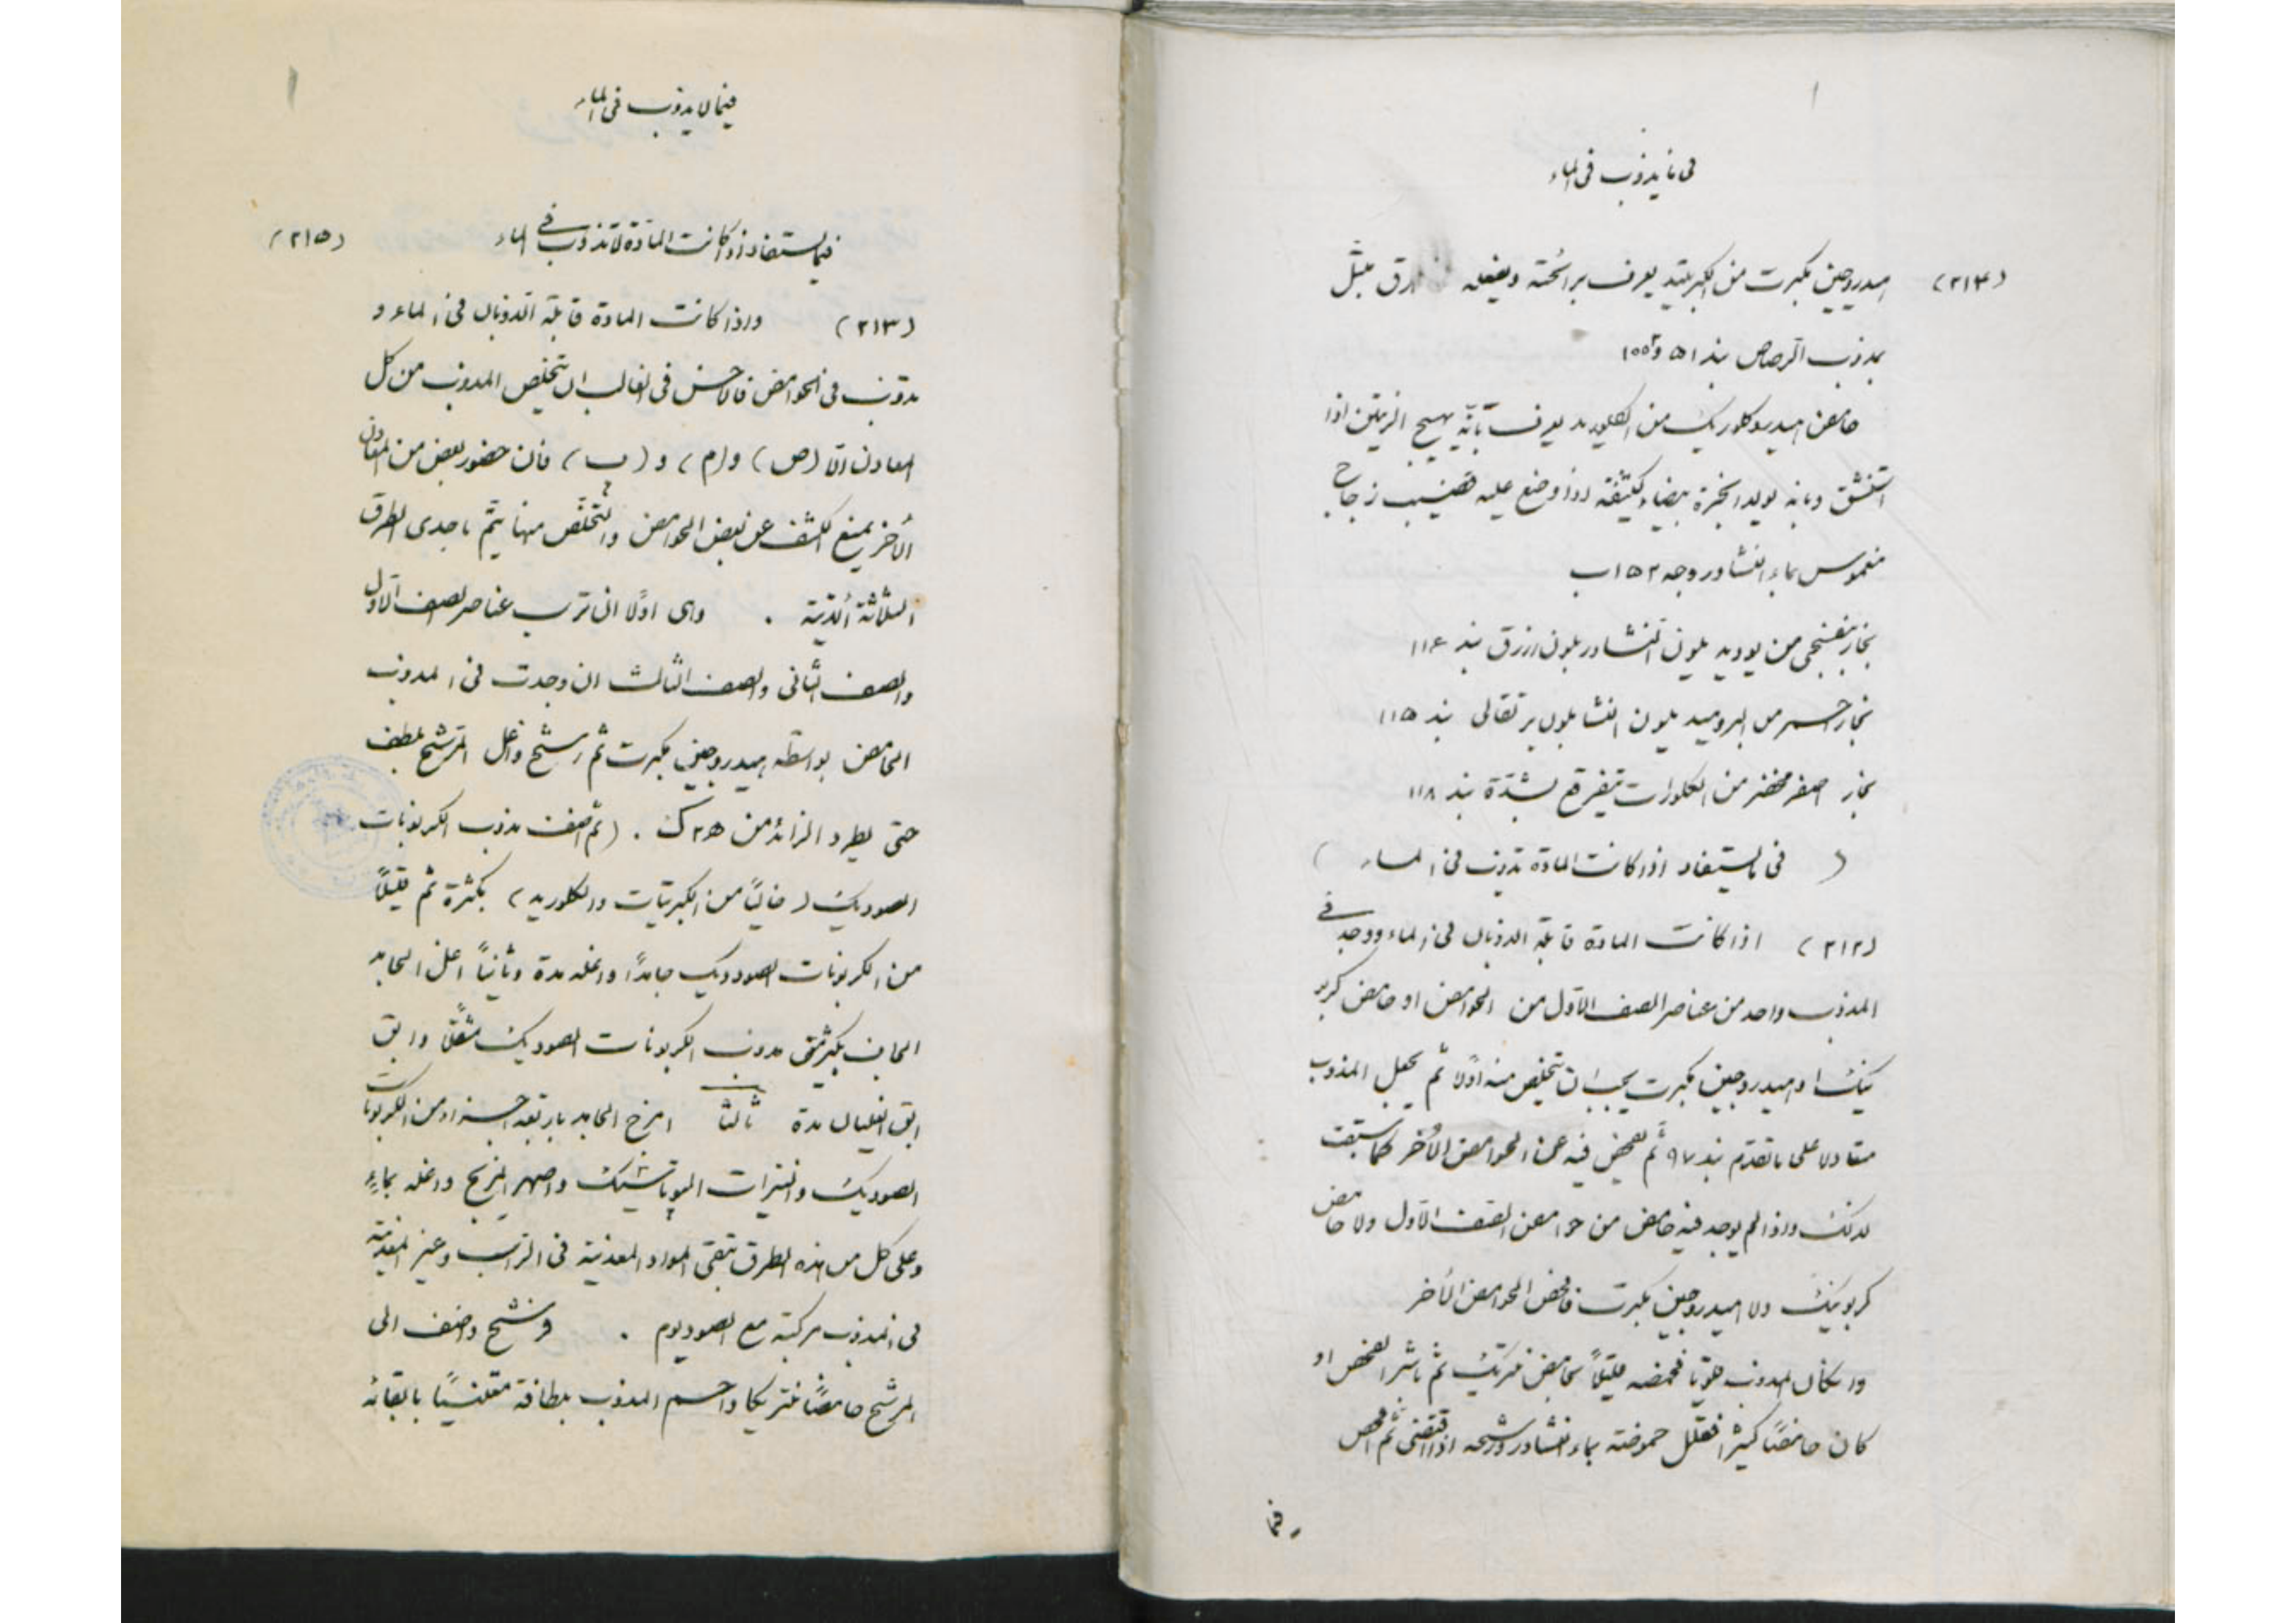 فى ما يذوب فى الماء
(٢١٤) هيدروجين مكبرت من الكبريتيد يعرف برائحته وبفعله ورق مبتل
بمذوب الرصاص بند ٥١ و ١٥٥
حامض هيدروكلوريك من الكلوريد يعرف بانّه يهيج الرئتين اذا
استنشق وبانه يولد ابخرة بيضاء كثيفة اذا وضع عليه قضيب زجاج
مغموس بماء النشادر وجه ١٥٢ ب
بخار بنفسجى من يوديد يلون النشا بلون ازرق بند ١١٤
بخار احمر من البروميد يلون النشا بلون برتقالى بند ١١٥
بخار اصفر مخضر من الكلورات يتفرقع بشدّة بند ١١٨
( فى ما يستفاد اذا كانت المادة تذوب فى الماء )
(٢١٢) اذا كانت المادة قابلة الذوبان فى الماء ووجد فى
المذوب واحد من عناصر الصف الاول من الحوامض او حامض كربو
نيك او هيدروجين مكبرت يجب ان تتخلص منه اولا ثم يجعل المذوب
متعادلا على ما تقدم بند ٩٧ ثم تفحص فيه عن الحوامض الأخر كما سبقت
لذلك واذا لم يوجد فيه حامض من حوامض الصف الاول ولا حامض
كربونيك ولا هيدروجين مكبرت فافحص الحوامض الأخر
وان كان المذوب قلويا فحمضه قليلاً بحامض نتريك ثم باشر الفحص او
كان حامضًا كثيرًا فقلل حموضته بماء النشادر ورشحه اذا اقتضى ثم افحص
فيما
فيما لا يذوب فى الماء
فيما يستفاد اذا كانت المادة لا تذوب فى الماء (٢١٥)
(٢١٣) واذا كانت المادة قابلة الذوبان فى الماء و
تذوب فى الحوامض فالاحسن فى الغالب ان تتخلص المذوب من كل
المعادن الّا (ص) و(م) و (ب) فان حضور بعض من المعادن
الأخر يمنع الكشف عن بعض الحوامض والتخلّص منها يتمّ باحدى الطرق
الثلاثة الآتية . وهى اولًا ان ترسب عناصر الصف الاول
والصف الثانى والصف الثالث ان وجدت فى المذوب
الحامض بواسطة هيدروجين مكبرت ثم رشح واغل المرشح بلطف
حتى يطرد الزائد من ه٢ ك . (ثم اضف مذوب الكربونات
الصوديك (خاليًا من الكبريتات والكلوريد) بكثرة ثم قليلًا
من الكربونات الصوديك جامدًا واغله مدة وثانيًا اغل الجامد
الجاف بكثير من مذوب الكربونات الصوديك مثقلًا وابق
ابق الغليان مدة ثالثًا امزج الجامد باربعة اجزاء من الكربونات
الصوديك والنيترات البوتاسيك واصهر المزيج واغله بماءٍ
وعلى كل من هذه الطرق تبقى المواد المعدنية فى الراسب وغير المعدنية
فى المذوب مركبة مع الصوديوم . فرشح واضف الى
المرشح حامضًا نتريكا واحم المذوب بلطافة معتنيًا بابقائه